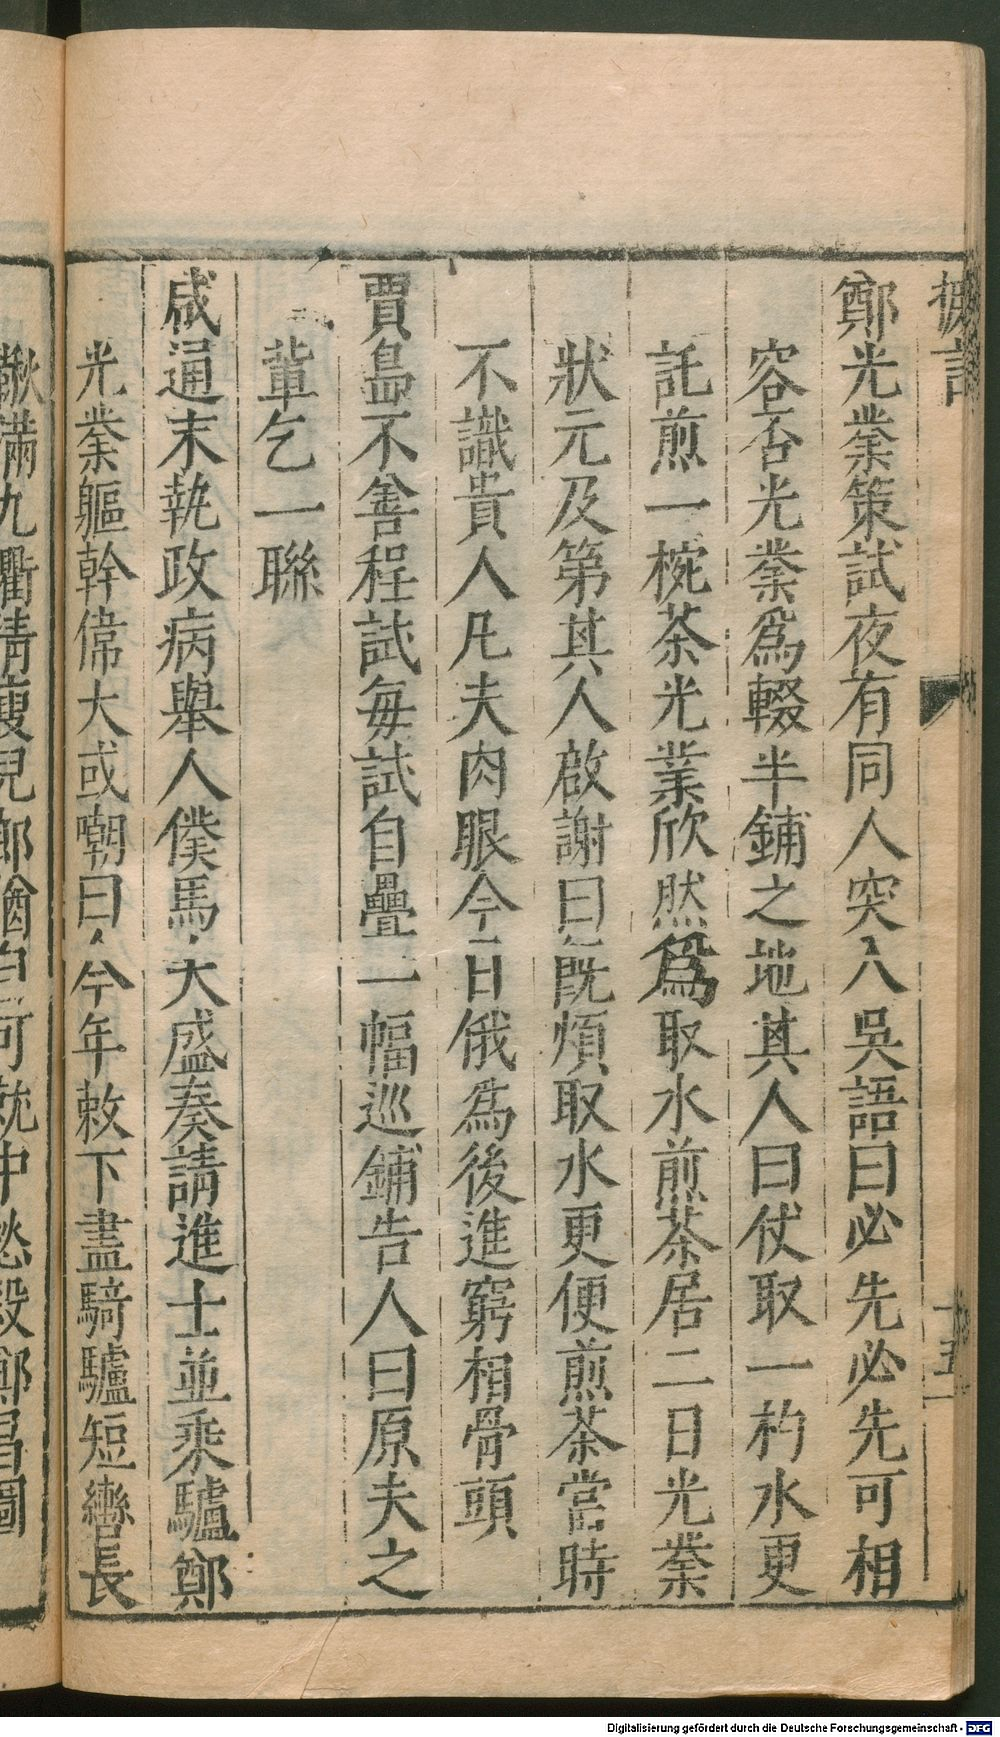 鄭光業策試夜有同人突入吳語曰必先必先可相
容否光業爲輟半鋪之地其人曰仗取一杓水更
託煎一椀茶光業欣然爲取水煎茶居二日光業
狀元及第其人啟謝曰旣煩取水更便煎茶當時
不識貴人凡夫肉眼今日俄爲後進窮相骨頭
賈島不善程試每試自疊一幅巡鋪告人曰原夫之
輩乞一聯
咸通末執政病舉人僕馬大盛奏請進士並乘驢鄭
光業軀幹偉大或嘲曰今年敕下盡騎驢短轡長
鞦滿九衢清瘦兒郎猶自可就中愁殺鄭昌圖
Digitalisierung gefördert durch die Deutsche Forschungsgemeinschaft - DFG